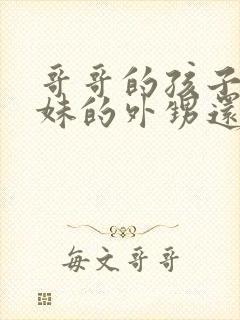 哥哥的孩子
妹的外甥還
每文哥哥